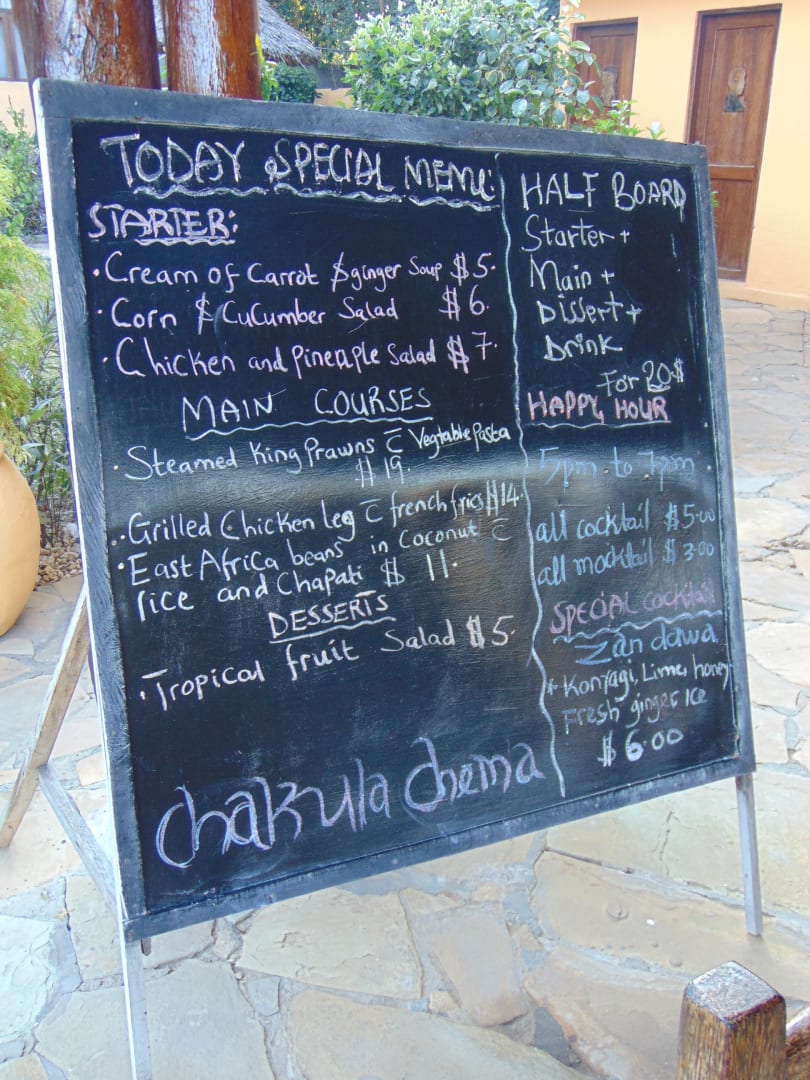 TODAY SPECIAL MENU:
STARTER:
• Cream of Carrot & ginger Soup $5.
• Corn & CuCumber Salad $6.
• Chicken and Pineaple Salad $7.
MAIN COURSES
• Steamed King Prawns c̅ Vegtable Pasta
$19.
• Grilled Chicken leg c̅ french fries $14.
• East Africa beans in Coconut c̅
rice and Chapati $11.
DESSERTS
• Tropical fruit Salad $5.
Chakula Chema
HALF BOARD
Starter +
Main +
Dissert +
Drink
For 20$
HAPPY HOUR
5pm to 7pm
all cocktail $5.00
all mocktail $3.00
SPECIAL COCKTAIL
Zan dawa
* Konyagi, Lime, honey
Fresh ginger Ice
$6.00